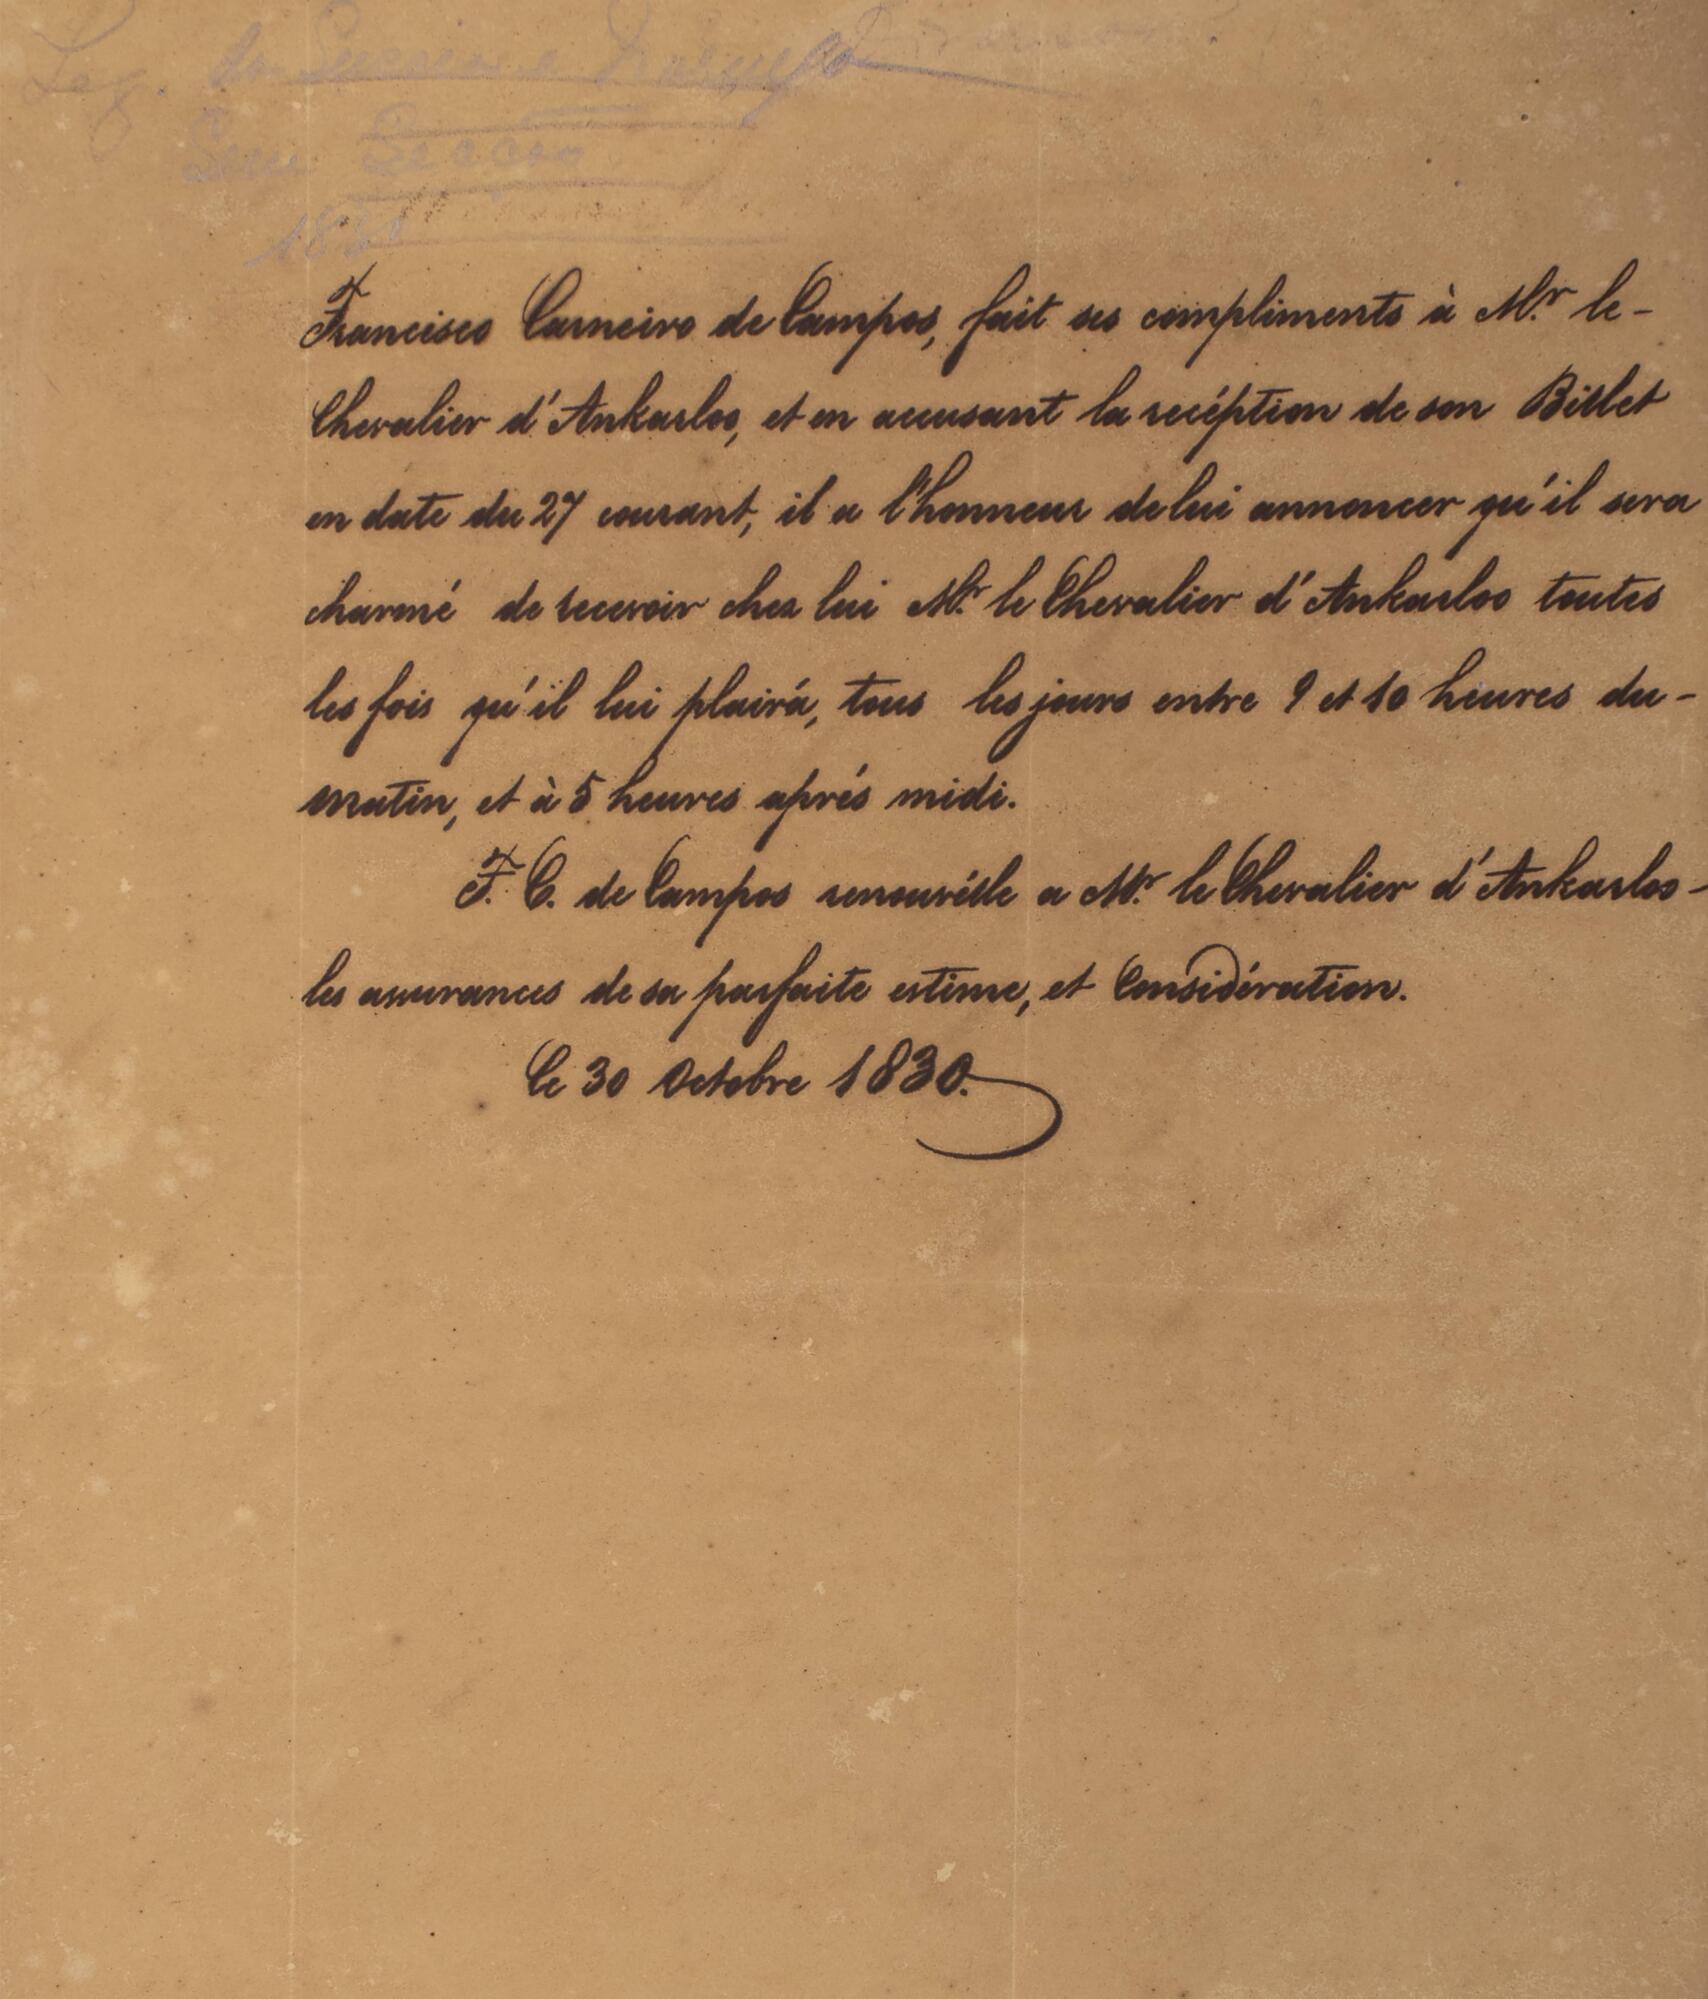 Leg. da Suecia e Noruega
1830
Francisco Carneiro de Campos, fait ses compliments à Mr. le-
Chevalier d'Ankarloo, et en accusant la recéption de son Billet
en date du 27 courant, il a l'honneur de lui annoncer qu'il sera
charmé de recevoir chez lui Mr. le Chevalier d'Ankarloo toutes
les fois qu'il lui plairá, tous les jours entre 9 et 10 heures du-
matin, et à 5 heures aprés midi.
F. C. de Campos renouvélle a Mr. le Chevalier d'Ankarloo-
les assurances de sa parfaite estime, et Considération.
Ce 30 Octobre 1830.